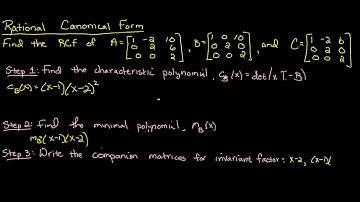 Rational Canonical Form
Find the RCF of A = [1 -2 10; 0 2 6; 0 0 2], B = [1 0 0; 0 2 0; 0 0 2], and C = [1 -2 2; 0 2 0; 0 0 2]
Step 1: Find the characteristic polynomial, C_B(x) = det(xI-B)
C_B(x) = (x-1)(x-2)²
Step 2: Find the minimal polynomial, m_B(x)
m_B(x-1)(x-2)
Step 3: Write the companion matrices for invariant factor: x-2, (x-1)(